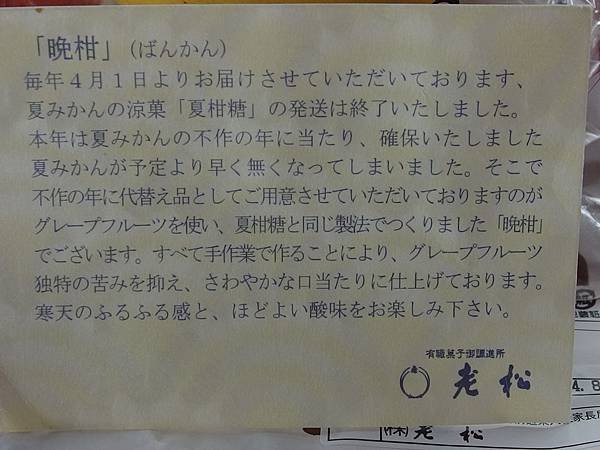 「晩柑」(ばんかん)
毎年4月1日よりお届けさせていただいております、
夏みかんの涼菓「夏柑糖」の発送は終了いたしました。
本年は夏みかんの不作の年に当たり、確保いたしました
夏みかんが予定より早く無くなってしまいました。そこで
不作の年に代替え品としてご用意させていただいておりますのが
グレープフルーツを使い、夏柑糖と同じ製法でつくりました「晩柑」
でございます。すべて手作業で作ることにより、グレープフルーツ
独特の苦みを抑え、さわやかな口当たりに仕上げております。
寒天のふるふる感と、ほどよい酸味をお楽しみ下さい。
有職菓子御調進所
老松
4.8
(株)老松